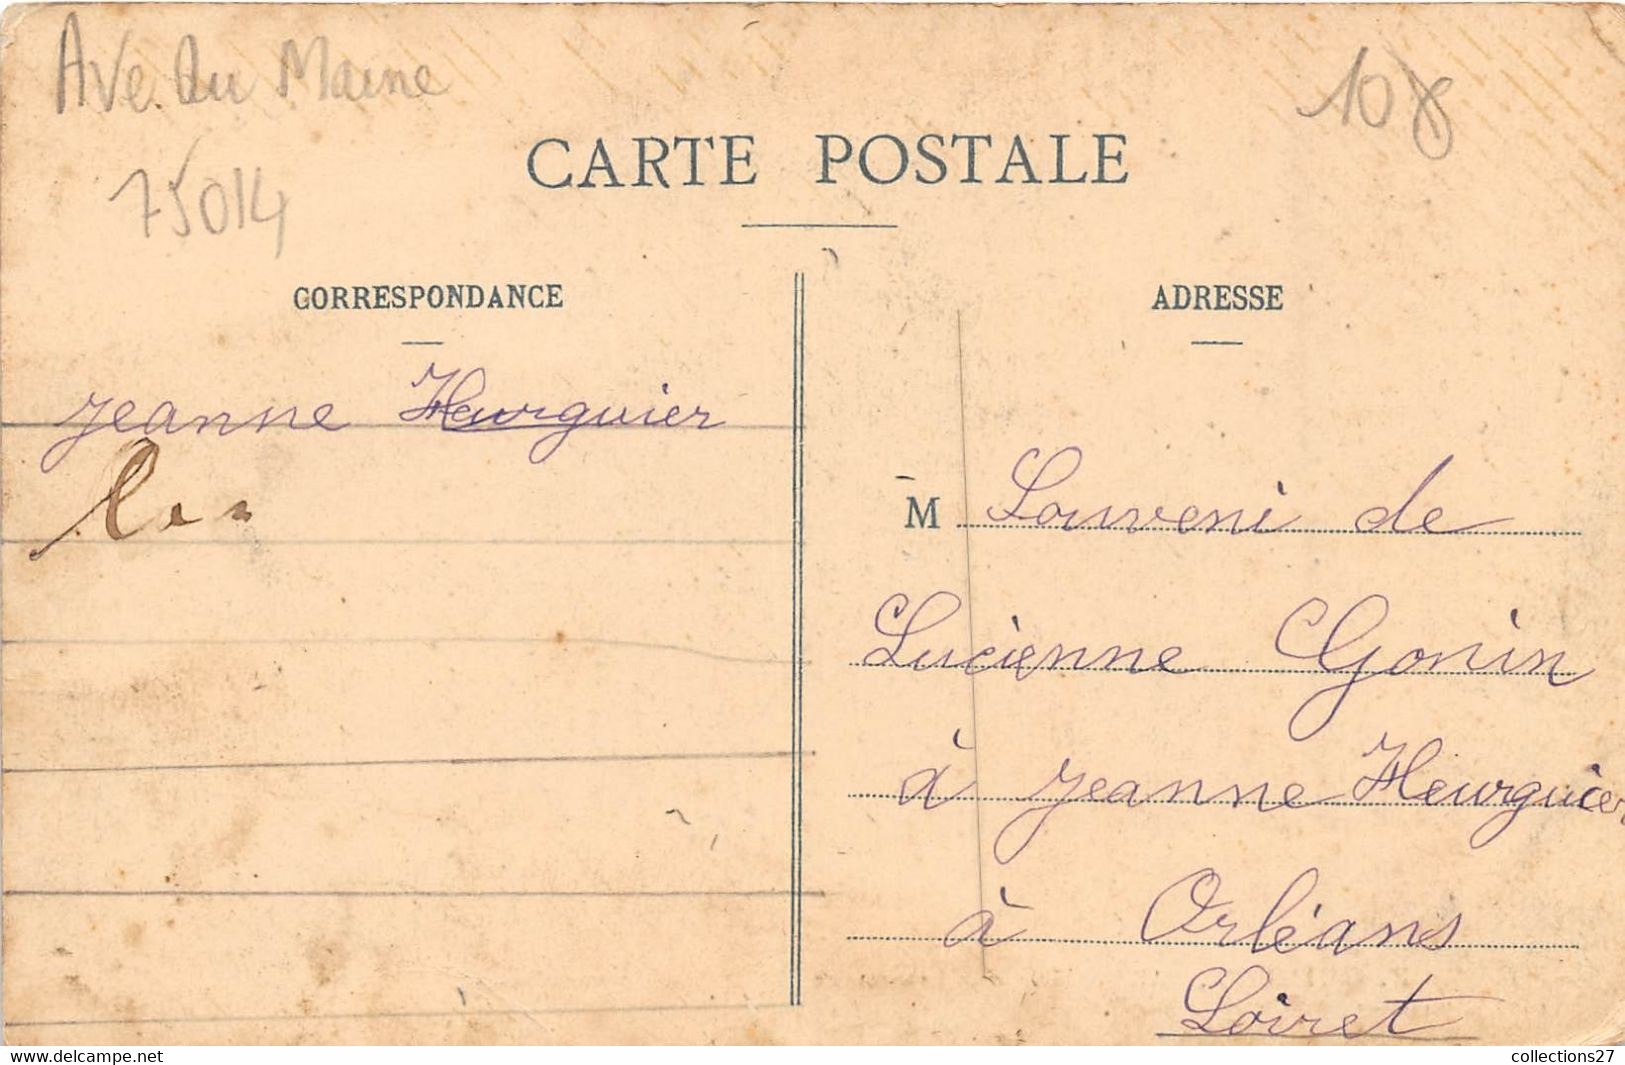 Ave. Du Maine
108
75014
CARTE POSTALE
CORRESPONDANCE
Jeanne Heurguier
ADRESSE
M Souveni de
Lucienne Gonin
à Jeanne Heurguier
à Orléans
Loiret
collections27